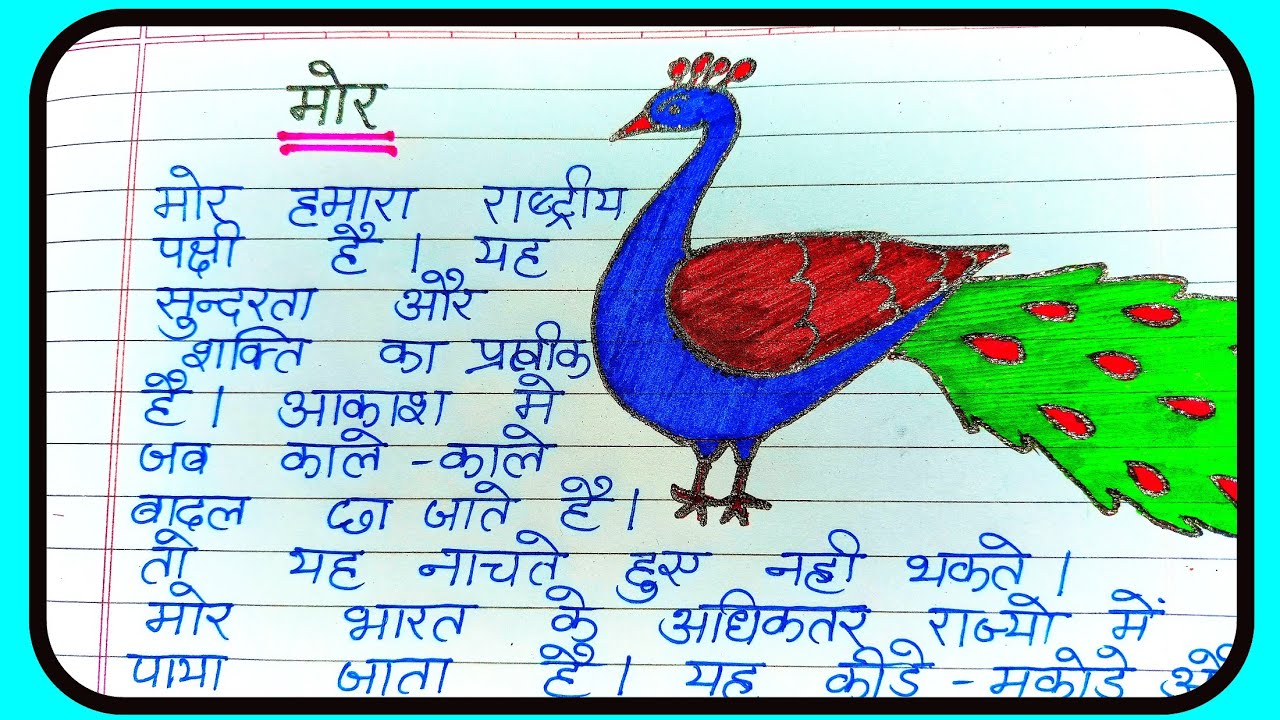 मोर
मोर हमारा राष्ट्रीय
पक्षी है। यह
सुन्दरता और
शक्ति का प्रतीक
है। आकाश मे
जब काले-काले
बादल छा जाते है।
तो यह नाचते हुए नही थकते।
मोर भारत के अधिकतर राज्यो में
पाया जाता है। यह कीडे-मकोडे